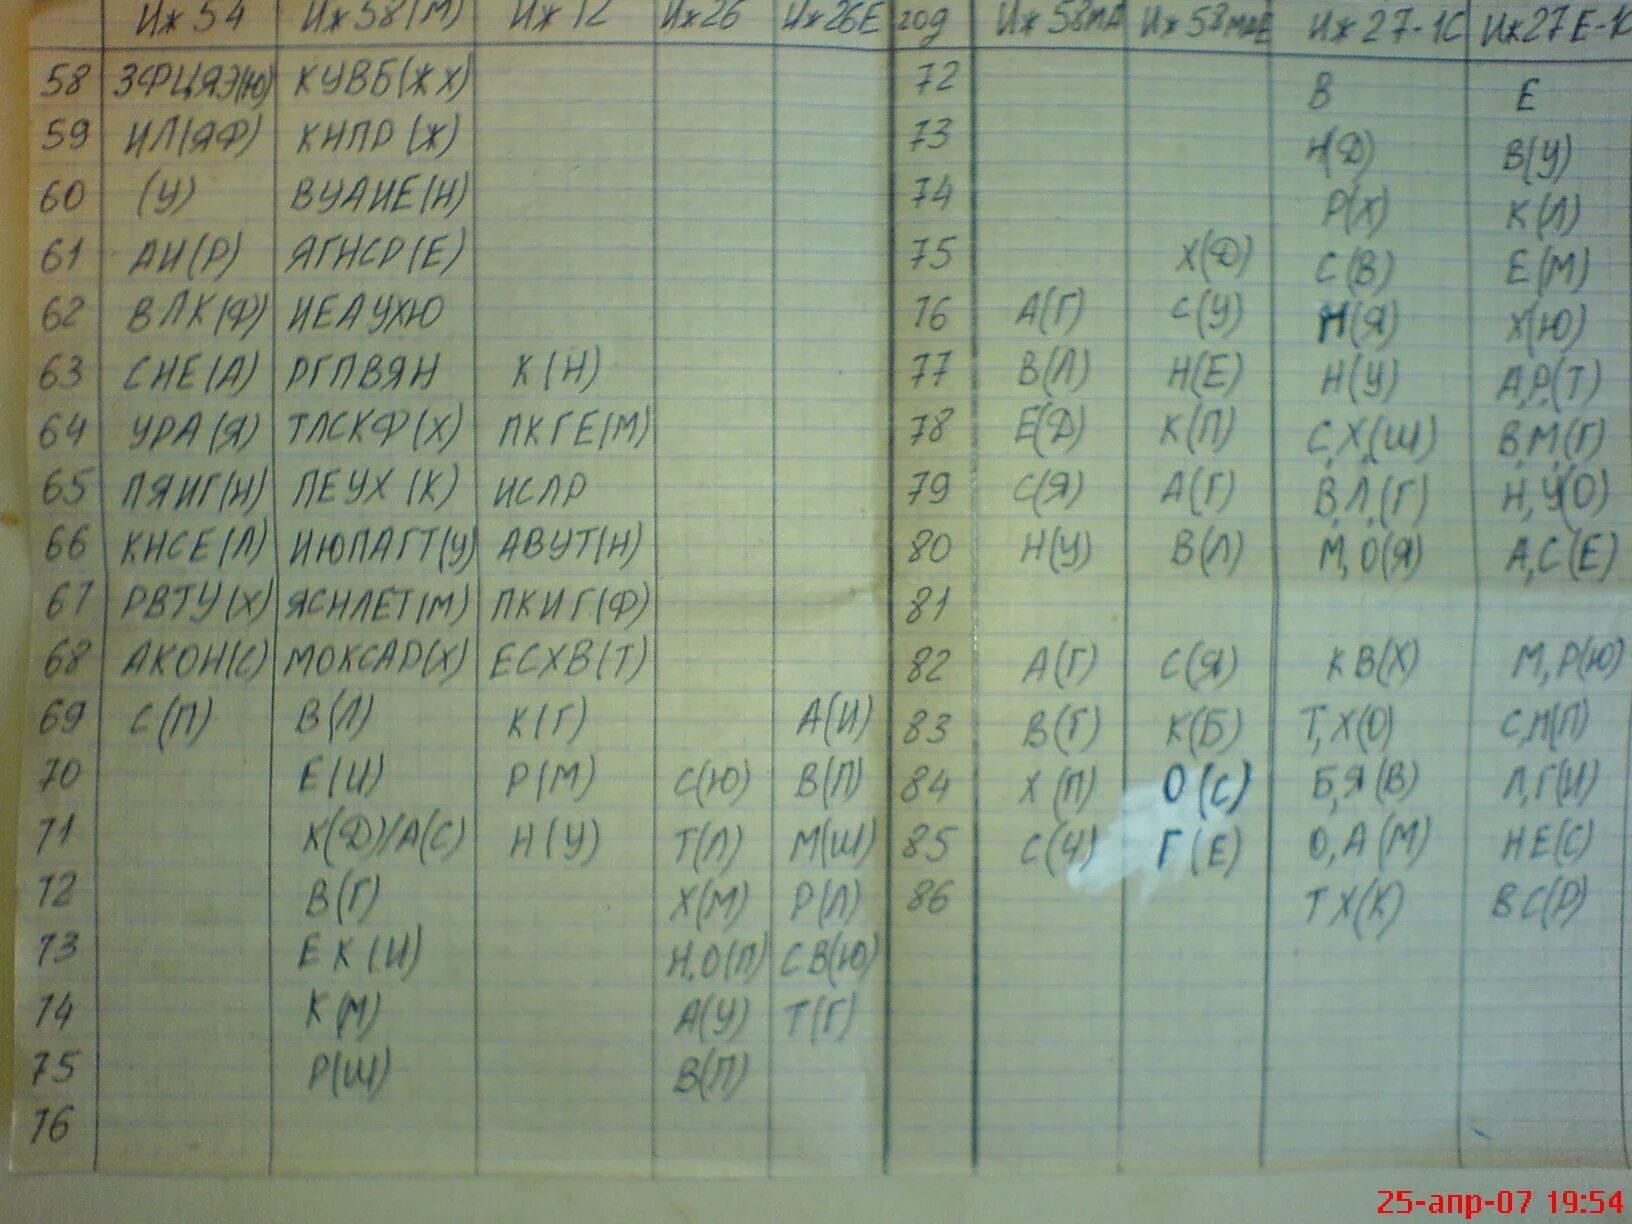 Иж 54 Иж 58 (М) Иж 12 Иж 26 Иж 26Е год Иж 58МА Иж 58МАЕ Иж 27-1С Иж 27Е-1С
58 ЗФЦЯЭ(Ю) КУВБ(ЖХ) 72 В Е
59 ИЛ(ЯФ) КНПР(Ж) 73 Н(Д) В(У)
60 (У) ВУАИЕ(Н) 74 Р(Х) К(Л)
61 АИ(Р) ЯГНСР(Е) 75 Х(Д) С(В) Е(М)
62 ВЛК(Ф) ИЕАУХЮ 76 А(Г) С(У) М(Я) Х(Ю)
63 СНЕ(А) РГПВЯН К(Н) 77 В(Л) Н(Е) Н(У) А,Р,(Т)
64 УРА(Я) ТЛСКФ(Х) ПКГЕ(М) 78 Е(Д) К(П) С,Х,(Ш) В,М,(Г)
65 ПЯИГ(Н) ПЕУХ(К) ИСЛР 79 С(Я) А(Г) В,Л,(Г) Н,У(О)
66 КНСЕ(Л) ИЮПАГТ(У) АВУТ(Н) 80 Н(У) В(Л) М,О(Я) А,С(Е)
67 РВТУ(Х) ЯСНЛЕТ(М) ПКИГ(Ф) 81
68 АКОН(С) МОКСАР(Х) ЕСХВ(Т) 82 А(Г) С(Я) КВ(Х) М,Р(Ю)
69 С(П) В(Л) К(Г) А(И) 83 В(Г) К(Б) Т,Х(О) С,Н(П)
70 Е(И) Р(М) С(Ю) В(П) 84 Х(П) О(С) Б,Я(В) Л,Г(И)
71 К(Д)/А(С) Н(У) Т(Л) М(Ш) 85 С(Ч) Г(Е) О,А(М) НЕ(С)
72 В(Г) Х(М) Р(Л) 86 ТХ(К) ВС(Р)
73 ЕК(И) Н,О(П) СВ(Ю)
74 К(М) А(У) Т(Г)
75 Р(Ш) В(П)
76
25-апр-07 19:54